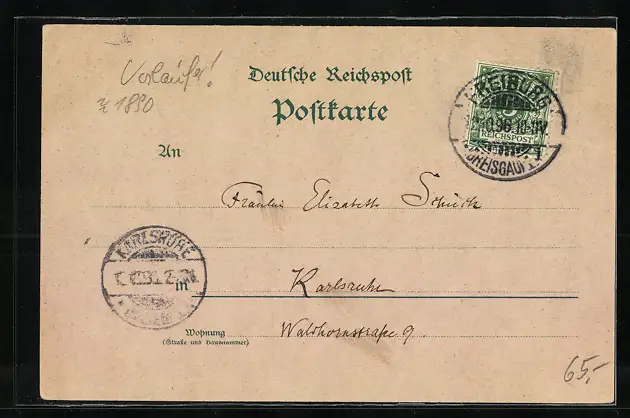 Vorläufer!
z 1890
Deutsche Reichspost
Postkarte
FREIBURG
REICHSPOST
(BREISGAU)
An
Fräulein Elisabeth
KARLSRUHE
in
Karlsruhe
Wohnung
(Straße und Hausnummer)
Waldhornstraße 9.
65,-